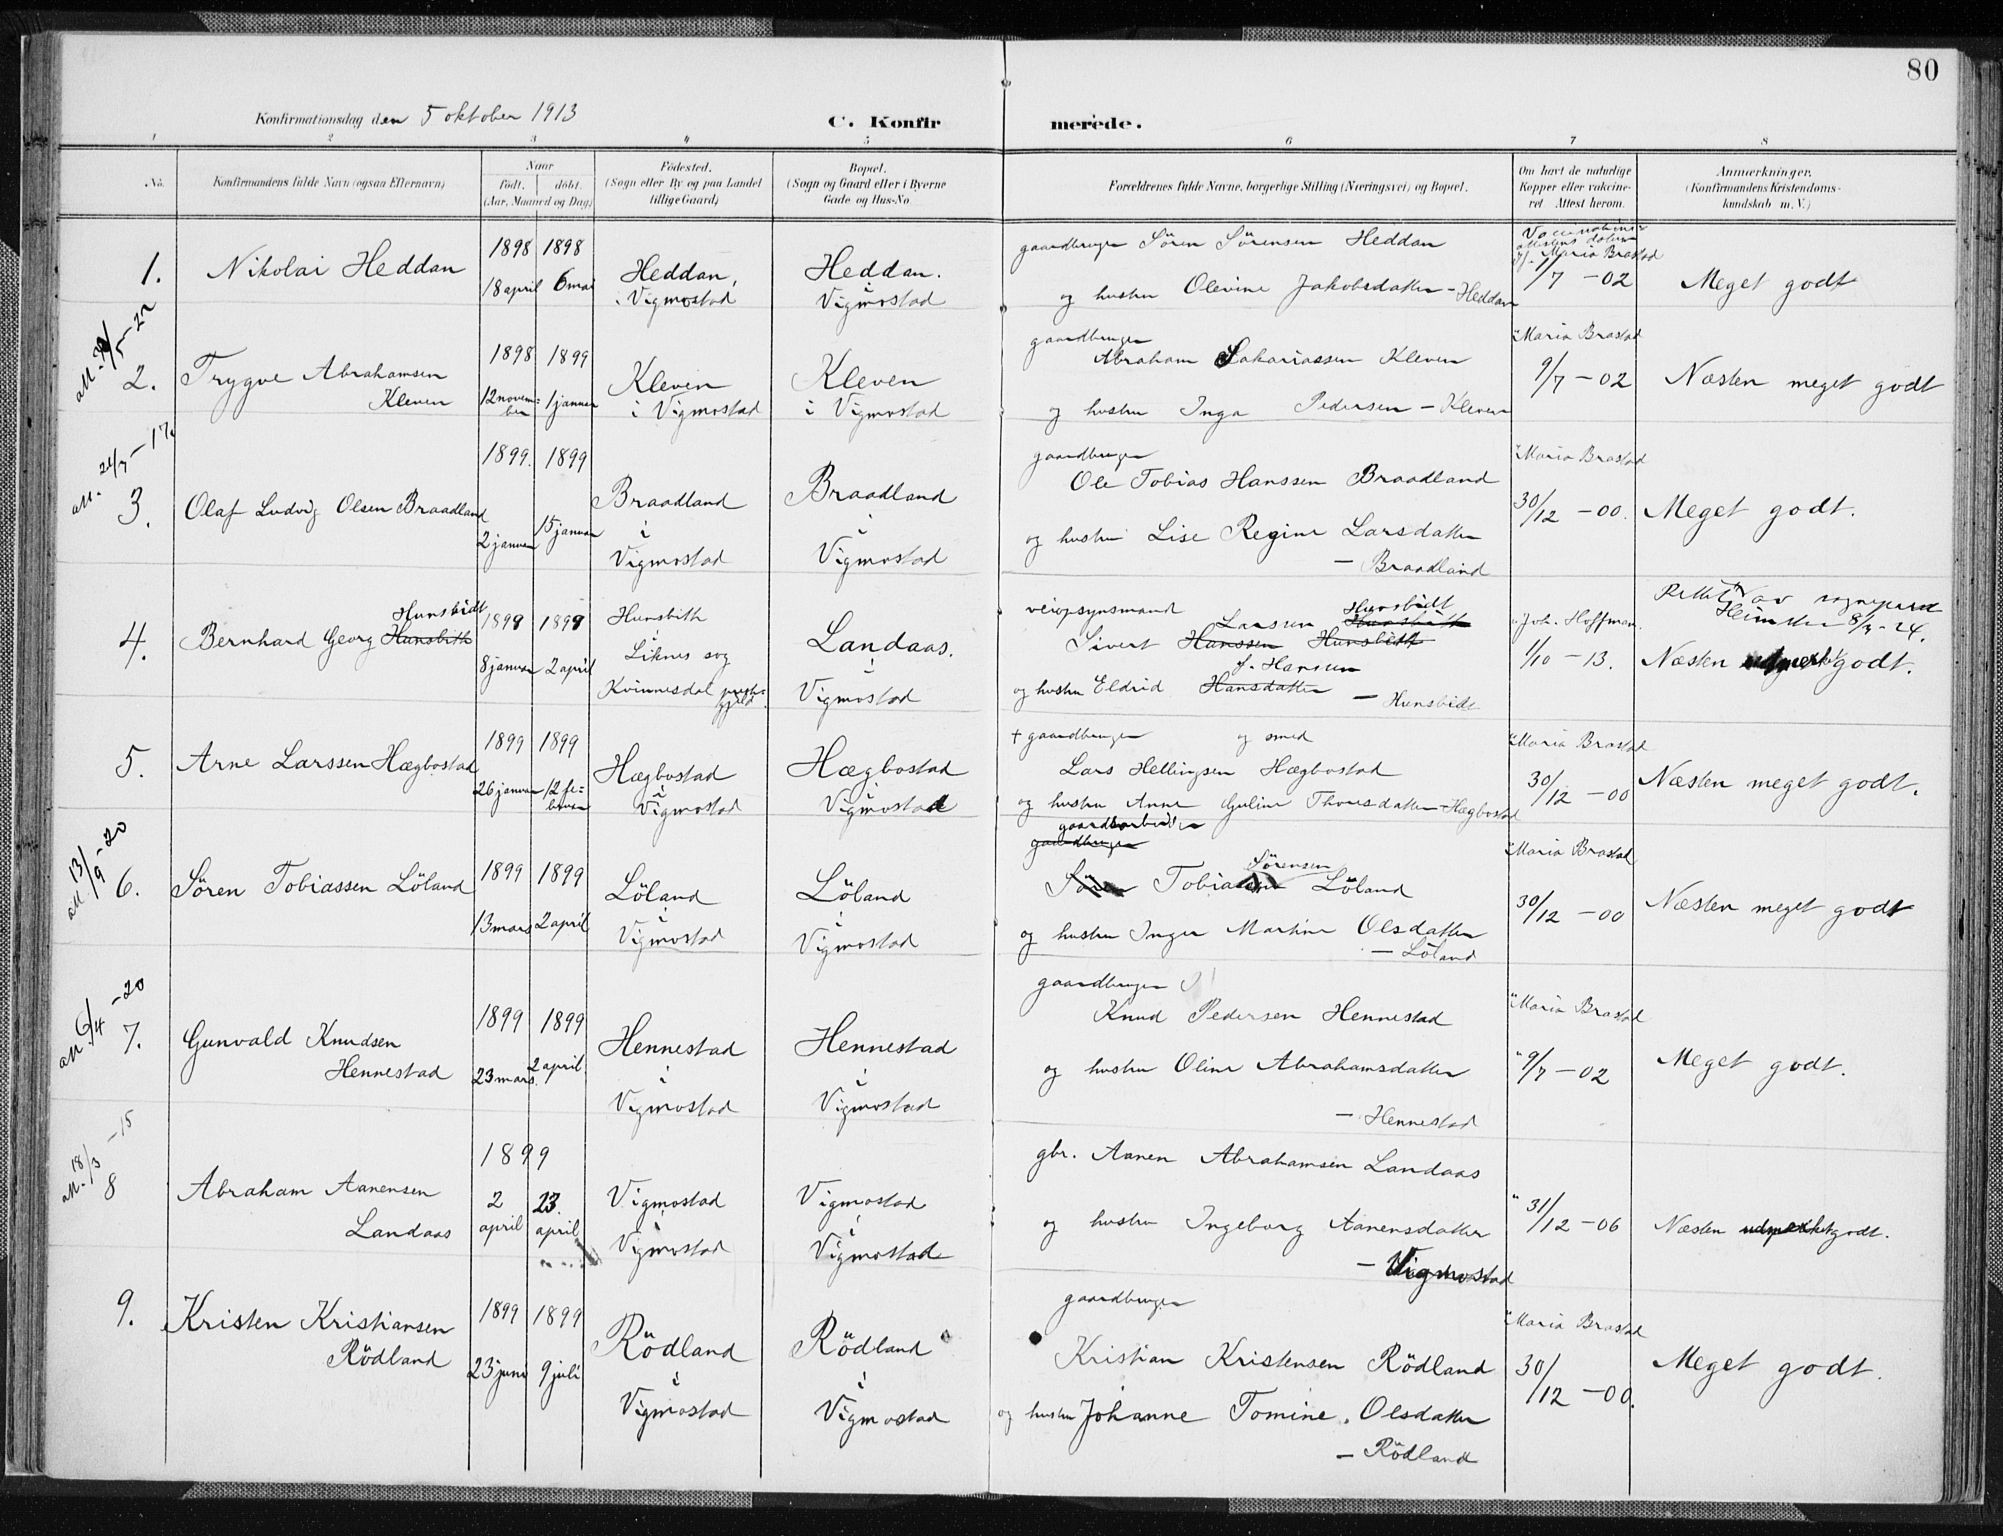 80
Konfirmationsdag den 5 oktober 1913
C. Konfirmerede.
1 2 3 4 5 6 7 8
No.
Konfirmandens fulde Navn (ogsaa Efternavn)
Naar
født. døbt.
(Aar, Maaned og Dag)
Fødested.
(Sogn eller By og paa Landet
tillige Gaard)
Bopæl.
(Sogn og Gaard eller i Byerne
Gade og Hus-No.
Forældrenes fulde Navne, borgerlige Stilling (Næringsvei) og Bopæl.
Om havt de naturlige
Kopper eller vakcine-
ret Attest herom.
Anmærkninger.
(Konfirmandens Kristendoms-
kundskab m. V.)
1.
Nikolai Heddan
1898 1898
18 april 6 mai
Heddan,
i Vigmostad
Heddan.
i
Vigmostad
gaardbruger Sören Sörensen Heddan
og hustru Olevine Jakobsdatter - Heddan
Maria Brastad
1/7 - 02
Meget godt
2.
Trygve Abrahamsen
Kleven
1898 1899
12 novem-
ber 1 januar
Kleven
i Vigmostad
Kleven
i Vigmostad
gaardbruger
Abraham Sakariassen Kleven
og hustru Inga Pedersen - Kleven
" Maria Brastad
9/7 - 02
Næsten meget godt
3.
Olaf Ludvig Olsen Braadland
1899. 1899
2 januar 15 januar
Braadland
i
Vigmostad
Braadland
i
Vigmostad
gaardbruger
Ole Tobias Hanssen Braadland
og hustru Lise Regine Larsdatter
- Braadland
" Maria Brastad
30/12 - 00.
Meget godt.
4.
Hunsbidt
Bernhard Georg Hunsbith
1899 1899
8 januar 2 april
Hunsbith
i
Liknes sog
Kvinnesdal prestegjeld.
Landaas.
i
Vigmostad
veiopsynsmand
Larsen Hunsbidt Hunsbith
Sivert Hanssen Hunsbith
f. Hansen
og hustru Eldrid Hansdatter - Hunsbidt
" Joh. Hoffman.
1/10 - 13.
Rettet av sogneprest
8/3-24.
Næsten godt.
5.
Arne Larssen Hægbostad
1899 1899
26 januar 12 fe-
bruar
Hægbostad
i
Vigmostad
Hægbostad
i
Vigmostad
+ gaardbruger og smed
Lars Hellingsen Hægbostad
og hustru Anne Guline Thoresdatter - Hægbostad
" Maria Brastad
30/12 - 00
Næsten meget godt.
13/9 - 20
6.
Sören Tobiassen Löland
1899 1899
13 mars 2 april
Löland
i
Vigmostad
Löland
i
Vigmostad
gaardarbeider
gaardbruger
Sörensen
Sören Tobiassen Löland
og hustru Inger Martine Olsdatter
- Löland
" Maria Brastad
30/12 - 00
Næsten meget godt
6/4 - 20
7.
Gunvald Knudsen
Hennestad
1899 1899
23 mars. 2 april
Hennestad
i
Vigmostad
Hennestad
i
Vigmostad
gaardbruger
Knud Pedersen Hennestad
og hustru Oline Abrahamsdatter
- Hennestad
" Maria Brastad
" 9/7 - 02
Meget godt.
18/3 - 15
8
Abraham Aanensen
Landaas
1899
2 23.
april april
Vigmostad
i
Vigmostad
Vigmostad
i
Vigmostad
gbr. Aanen Abrahamsen Landaas
og hustru Ingeborg Aanensdatter
- Vigmostad
" 31/12 - 06
Næsten udmerket godt.
9.
Kristen Kristiansen
Rödland
1899 1899
23 juni 9 juli
Rödland
i
Vigmostad
Rödland
i
Vigmostad
gaardbruger
Kristian Kristensen Rödland
og hustru Johanne Tomine Olsdatter
- Rödland
" Maria Brastad
30/12 - 00.
Meget godt.